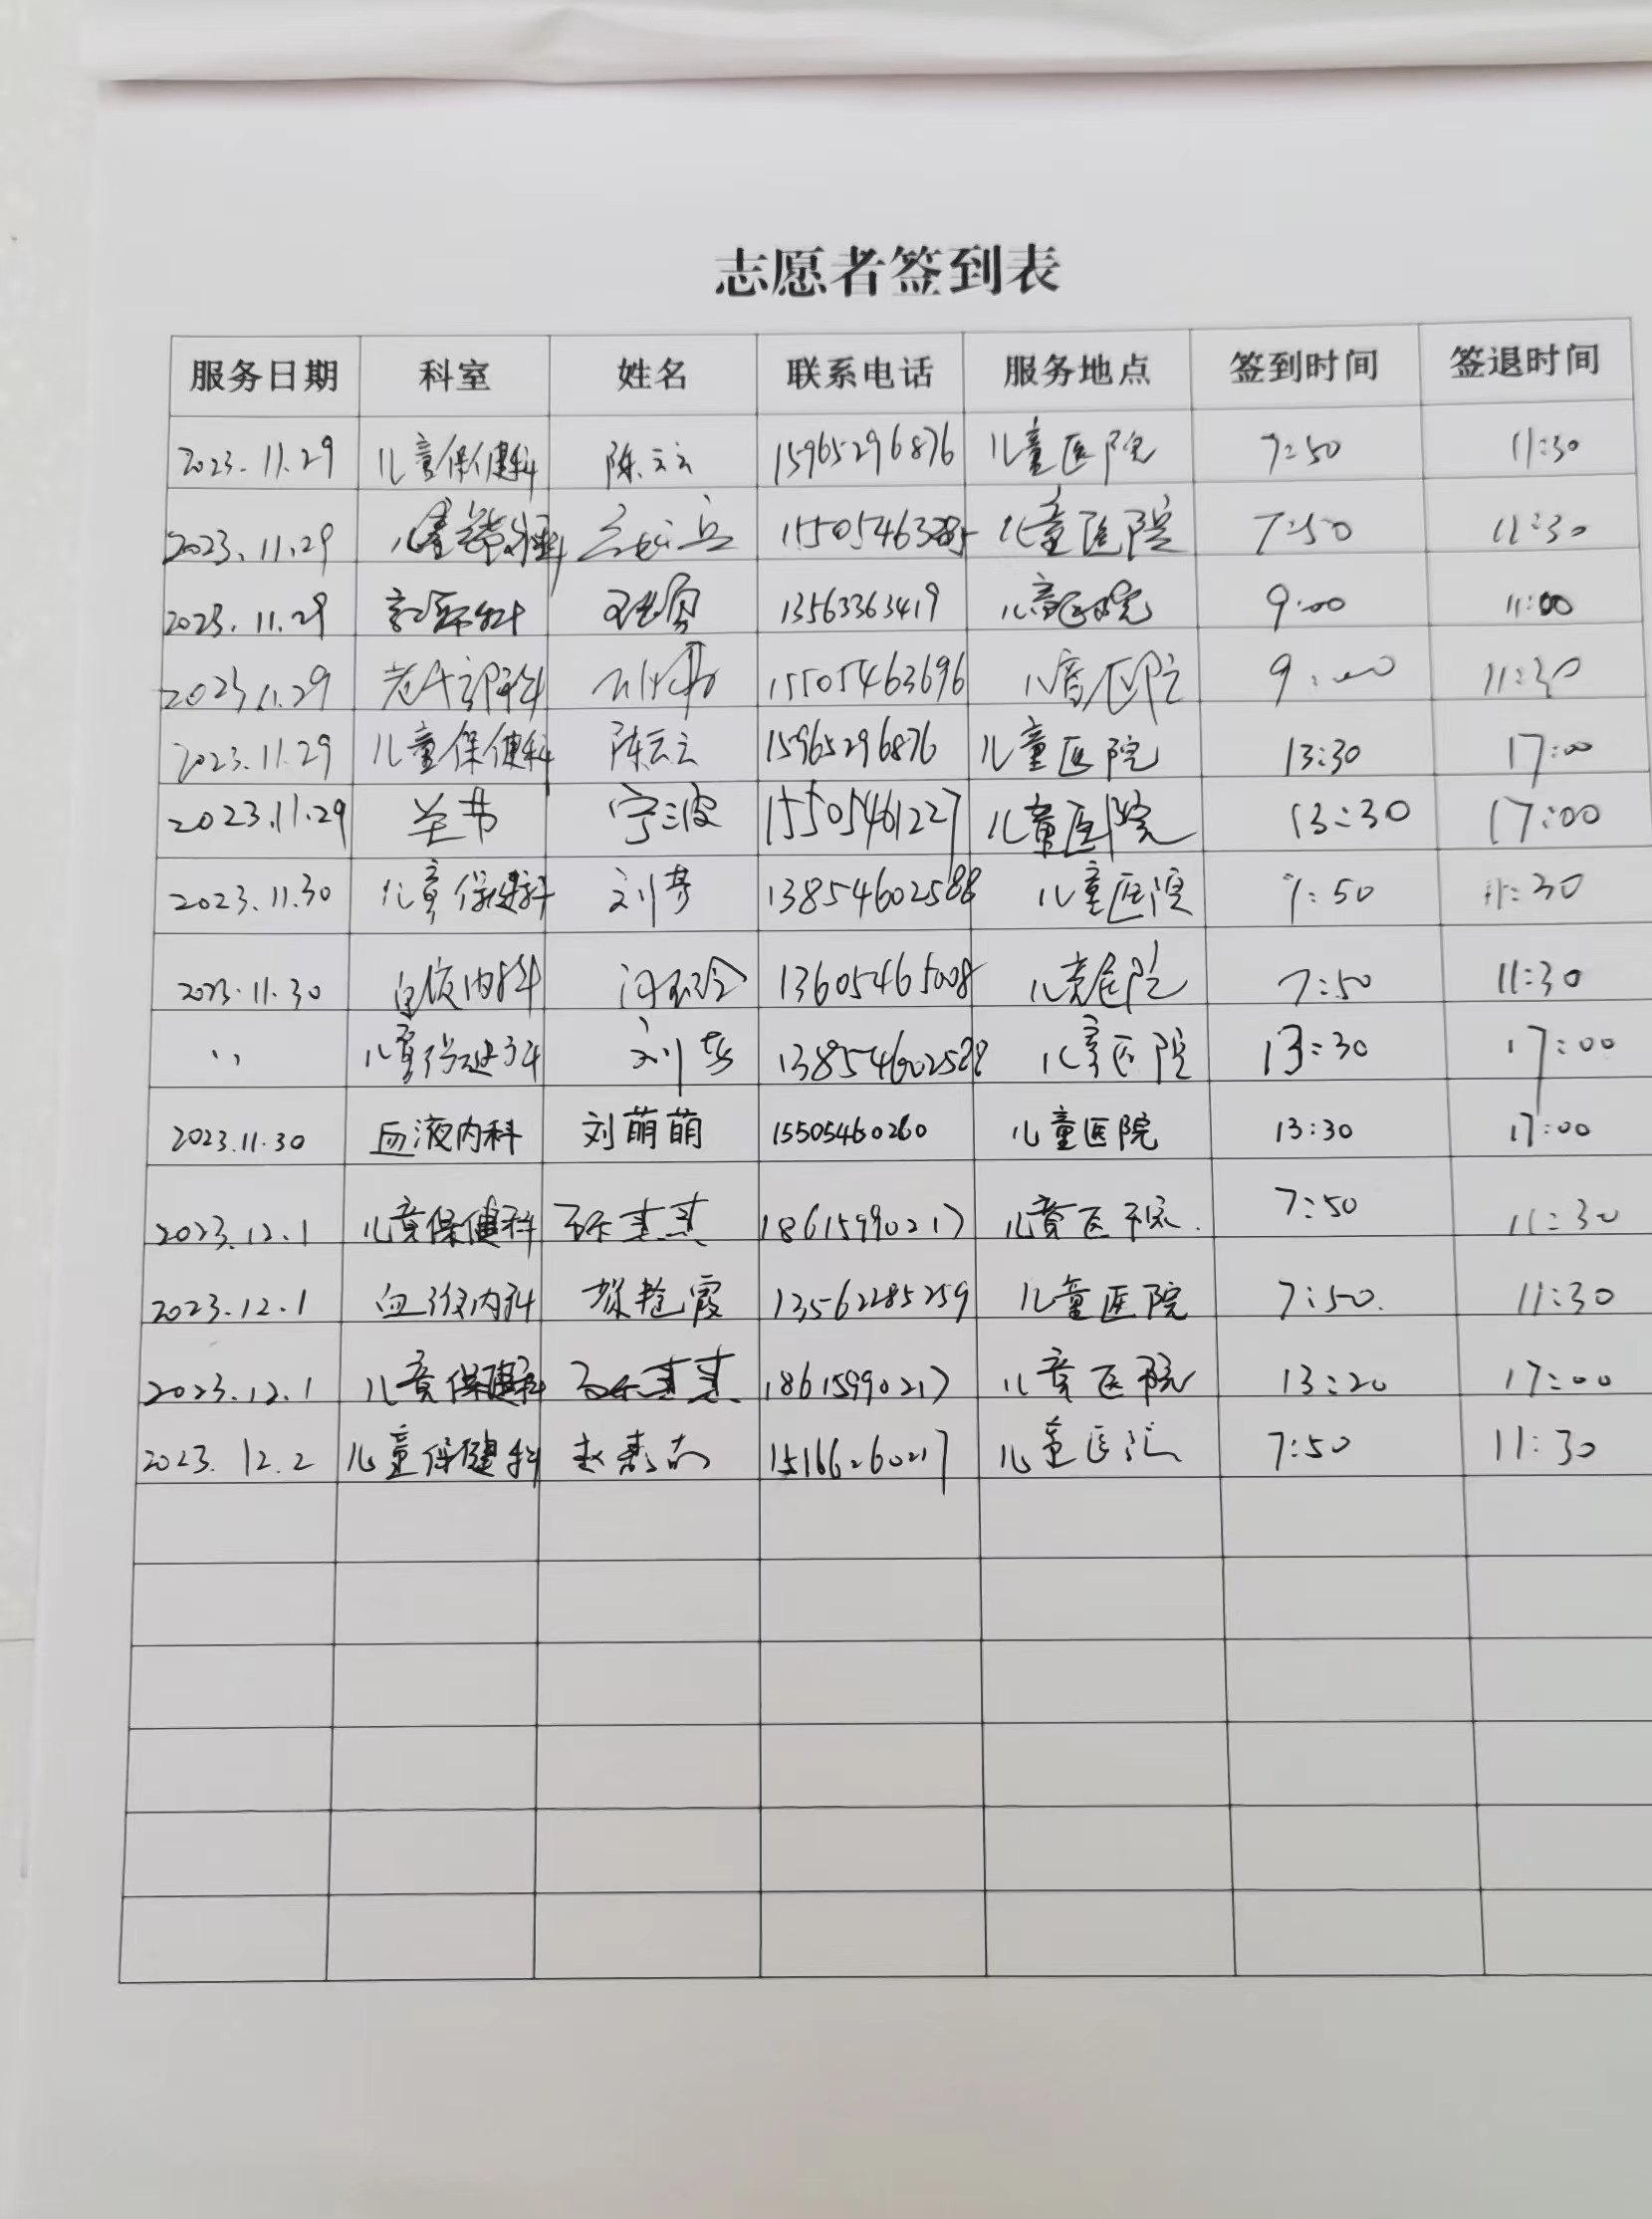 志愿者签到表
服务日期 科室 姓名 联系电话 服务地点 签到时间 签退时间
2023.11.29 儿童保健科 陈云云 15965296876 儿童医院 7:50 11:30
2023.11.29 儿童医院 7:50 11:30
2023.11.29 13563363419 儿童医院 9:00 11:00
2023.11.29 15505463696 儿童医院 9:00 11:30
2023.11.29 儿童保健科 陈云云 15965296876 儿童医院 13:30 17:00
2023.11.29 宁波 15505461227 儿童医院 13:30 17:00
2023.11.30 儿童保健科 13854602588 儿童医院 7:50 11:30
2023.11.30 血液内科 13605465008 儿童医院 7:50 11:30
儿童保健科 13854602588 儿童医院 13:30 17:00
2023.11.30 血液内科 刘萌萌 15505460260 儿童医院 13:30 17:00
2023.12.1 儿童保健科 18615990217 儿童医院 7:50 11:30
2023.12.1 血液内科 13562285259 儿童医院 7:50 11:30
2023.12.1 儿童保健科 18615990217 儿童医院 13:20 17:00
2023.12.2 儿童保健科 15166260217 儿童医院 7:50 11:30